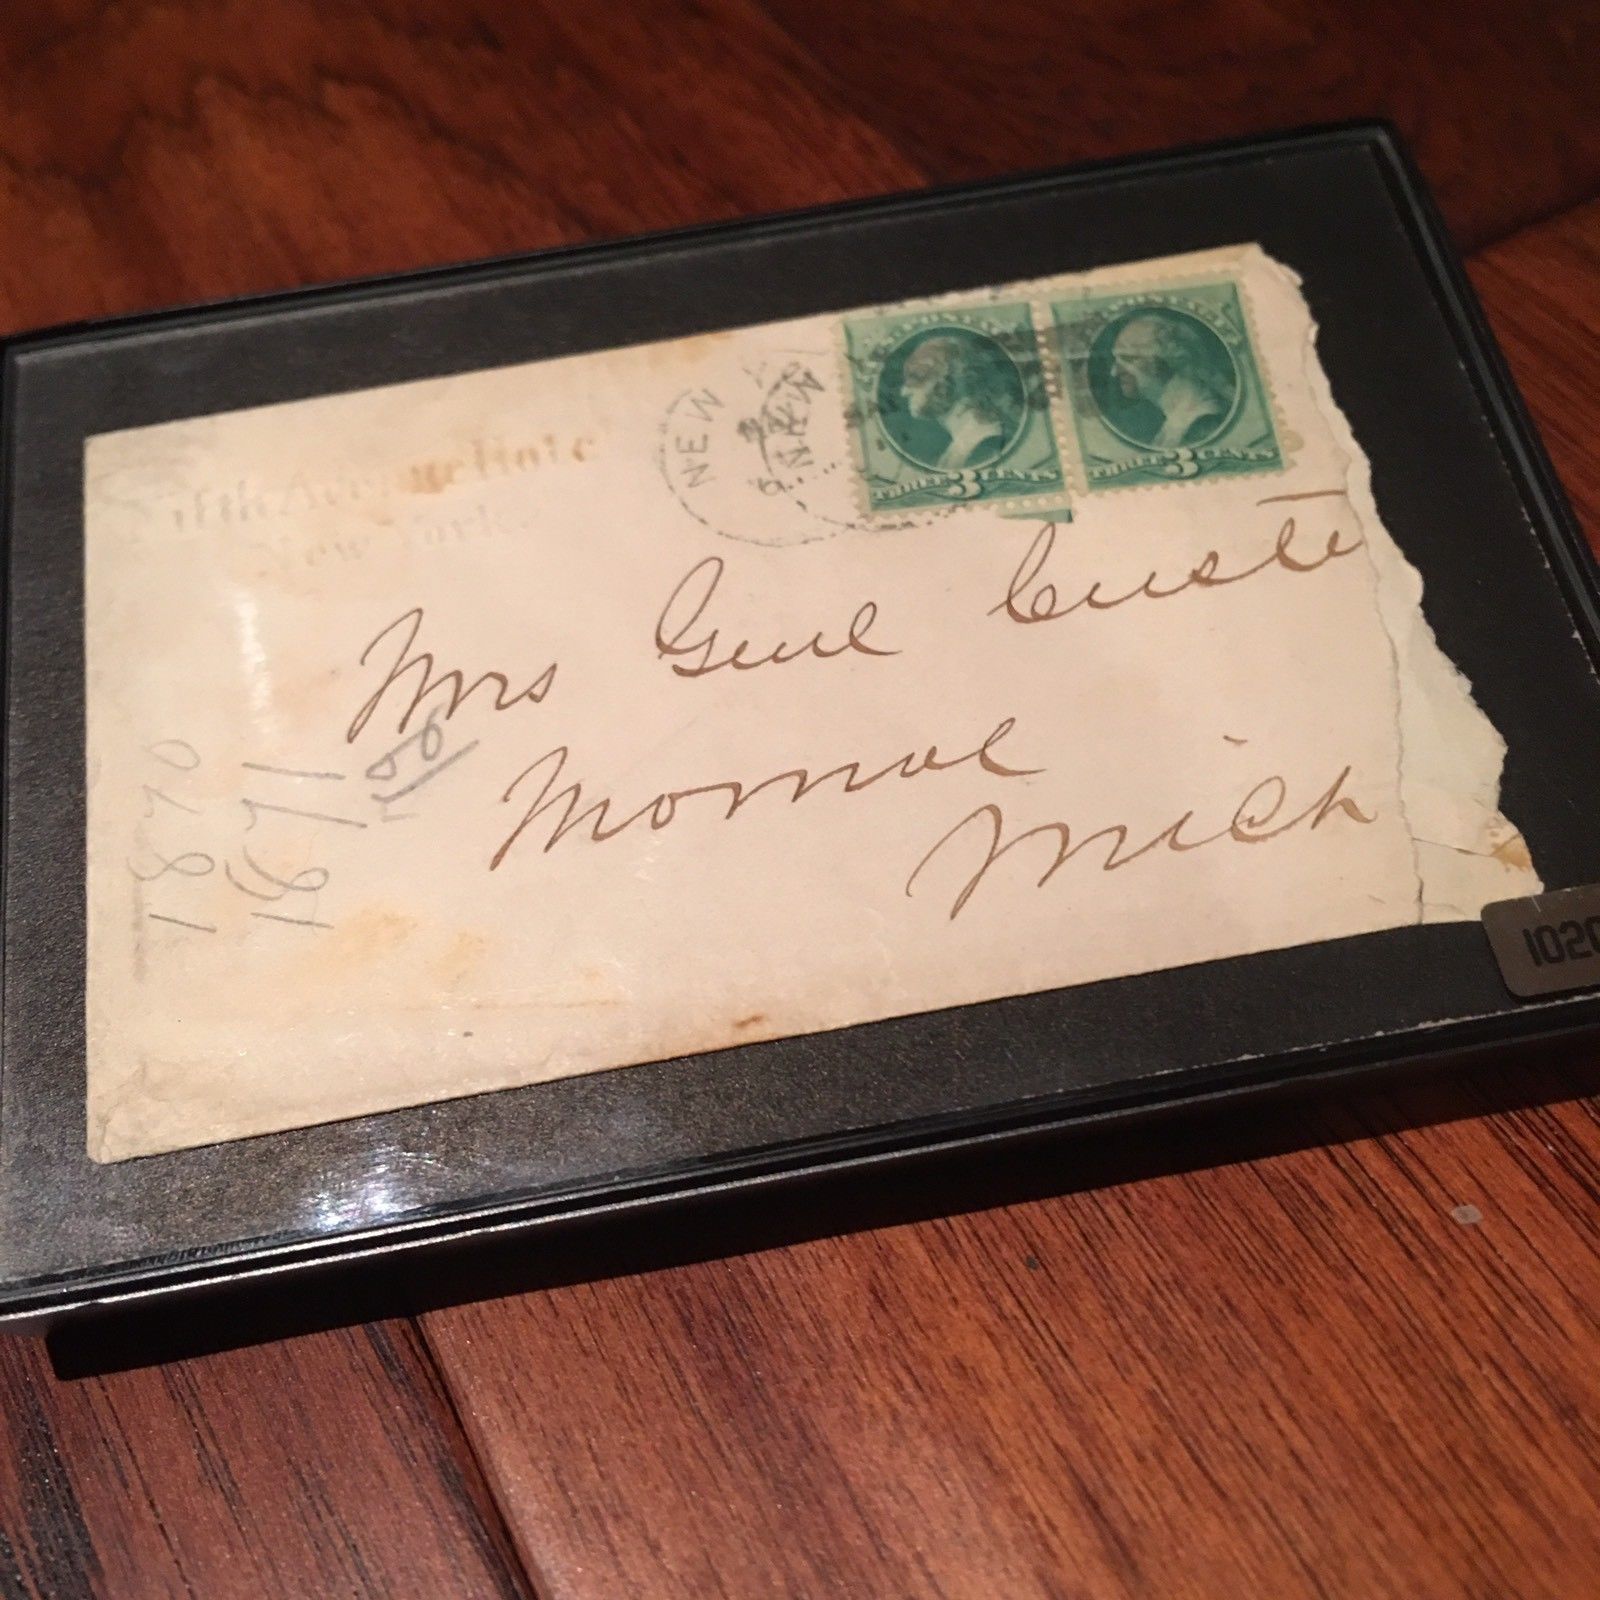 Fifth Avenue Hotel
New York.
NEW
NEW
THREE 3 CENTS
THREE 3 CENTS
Mrs Genl Custe
Monroe
Mich
1870
1871
1020